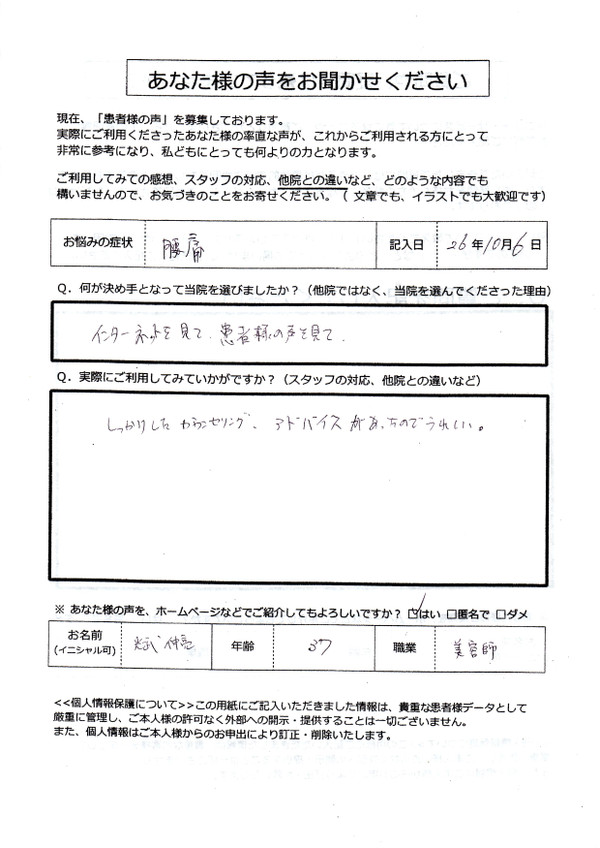 あなた様の声をお聞かせください
現在、「患者様の声」を募集しております。
実際にご利用くださったあなた様の率直な声が、これからご利用される方にとって
非常に参考になり、私どもにとっても何よりの力となります。
ご利用してみての感想、スタッフの対応、他院との違いなど、どのような内容でも
構いませんので、お気づきのことをお寄せください。（ 文章でも、イラストでも大歓迎です）
お悩みの症状 腰痛 記入日 26年10月6日
Q．何が決め手となって当院を選びましたか？（他院ではなく、当院を選んでくださった理由）
インターネットを見て、患者様の声を見て、
Q．実際にご利用してみていかがですか？（スタッフの対応、他院との違いなど）
しっかりしたカウンセリング、アドバイスがあったのでうれしい。
※ あなた様の声を、ホームページなどでご紹介してもよろしいですか？ ☑はい □匿名で □ダメ
お名前 年齢 37 職業 美容師
(イニシャル可)
<<個人情報保護について>>この用紙にご記入いただきました情報は、貴重な患者様データとして
厳重に管理し、ご本人様の許可なく外部への開示・提供することは一切ございません。
また、個人情報はご本人様からのお申出により訂正・削除いたします。